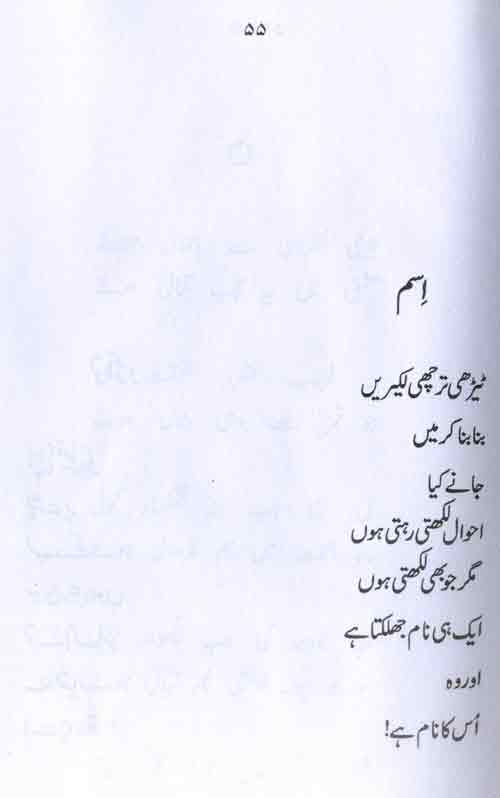 ۵۵
اِسم
ٹیڑھی ترچھی لکیریں
بنا بنا کر میں
جانے کیا
احوال لکھتی رہتی ہوں
مگر جو بھی لکھتی ہوں
ایک ہی نام جھلکتا ہے
اور وہ
اُس کا نام ہے!